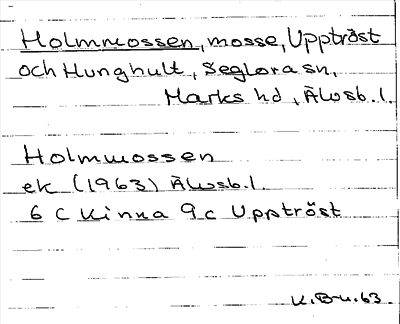 Holmmossen, mosse, Upptröst
och Hunghult, Seglora sn,
Marks hd, Älvsb. l.
Holmmossen
ek (1963) Älvsb. l.
6 C Kinna 9c Upptröst
K.Br-u. 63.